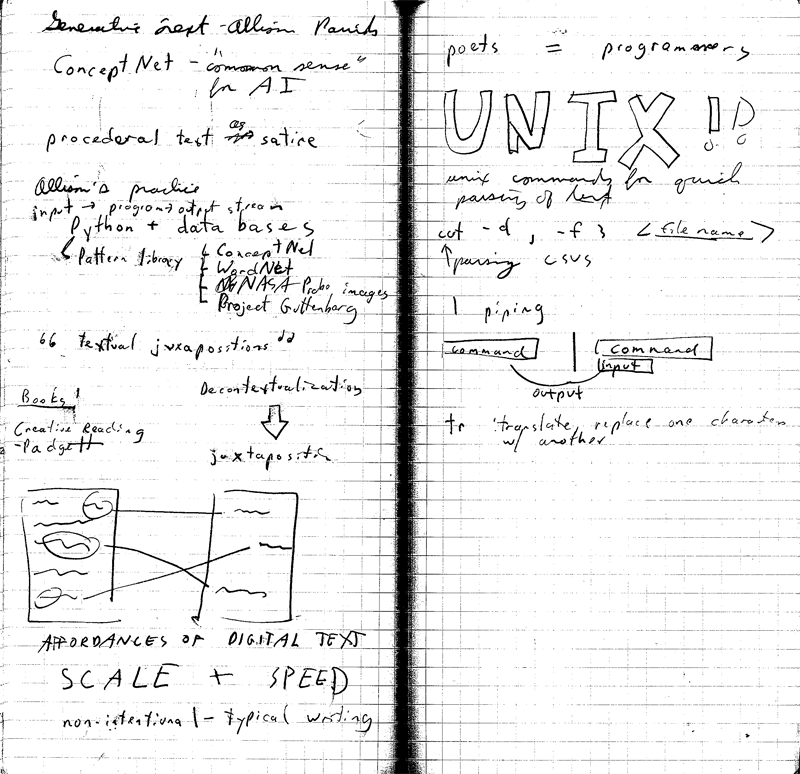 Generative Text - Allison Parrish
ConceptNet - "common sense"
for AI
procederal text as satire
Allison's practice
input → program → output stream
Python + data bases
Pattern library
ConceptNet
WordNet
NASA Probe images
Project Guttenberg
66 textual juxapositions "
Decontextualization
Books!
Creative Reading
- Padgett
juxtaposition
AFFORDANCES OF DIGITAL TEXT
SCALE + SPEED
non-intentional - typical writing
poets = programmers
UNIX !?
unix commands for quick
parsing of text
cut -d , -f 3 < file name >
↑ parsing CSVS
| piping
command | command
input
output
tr translate, replace one character
w/ another